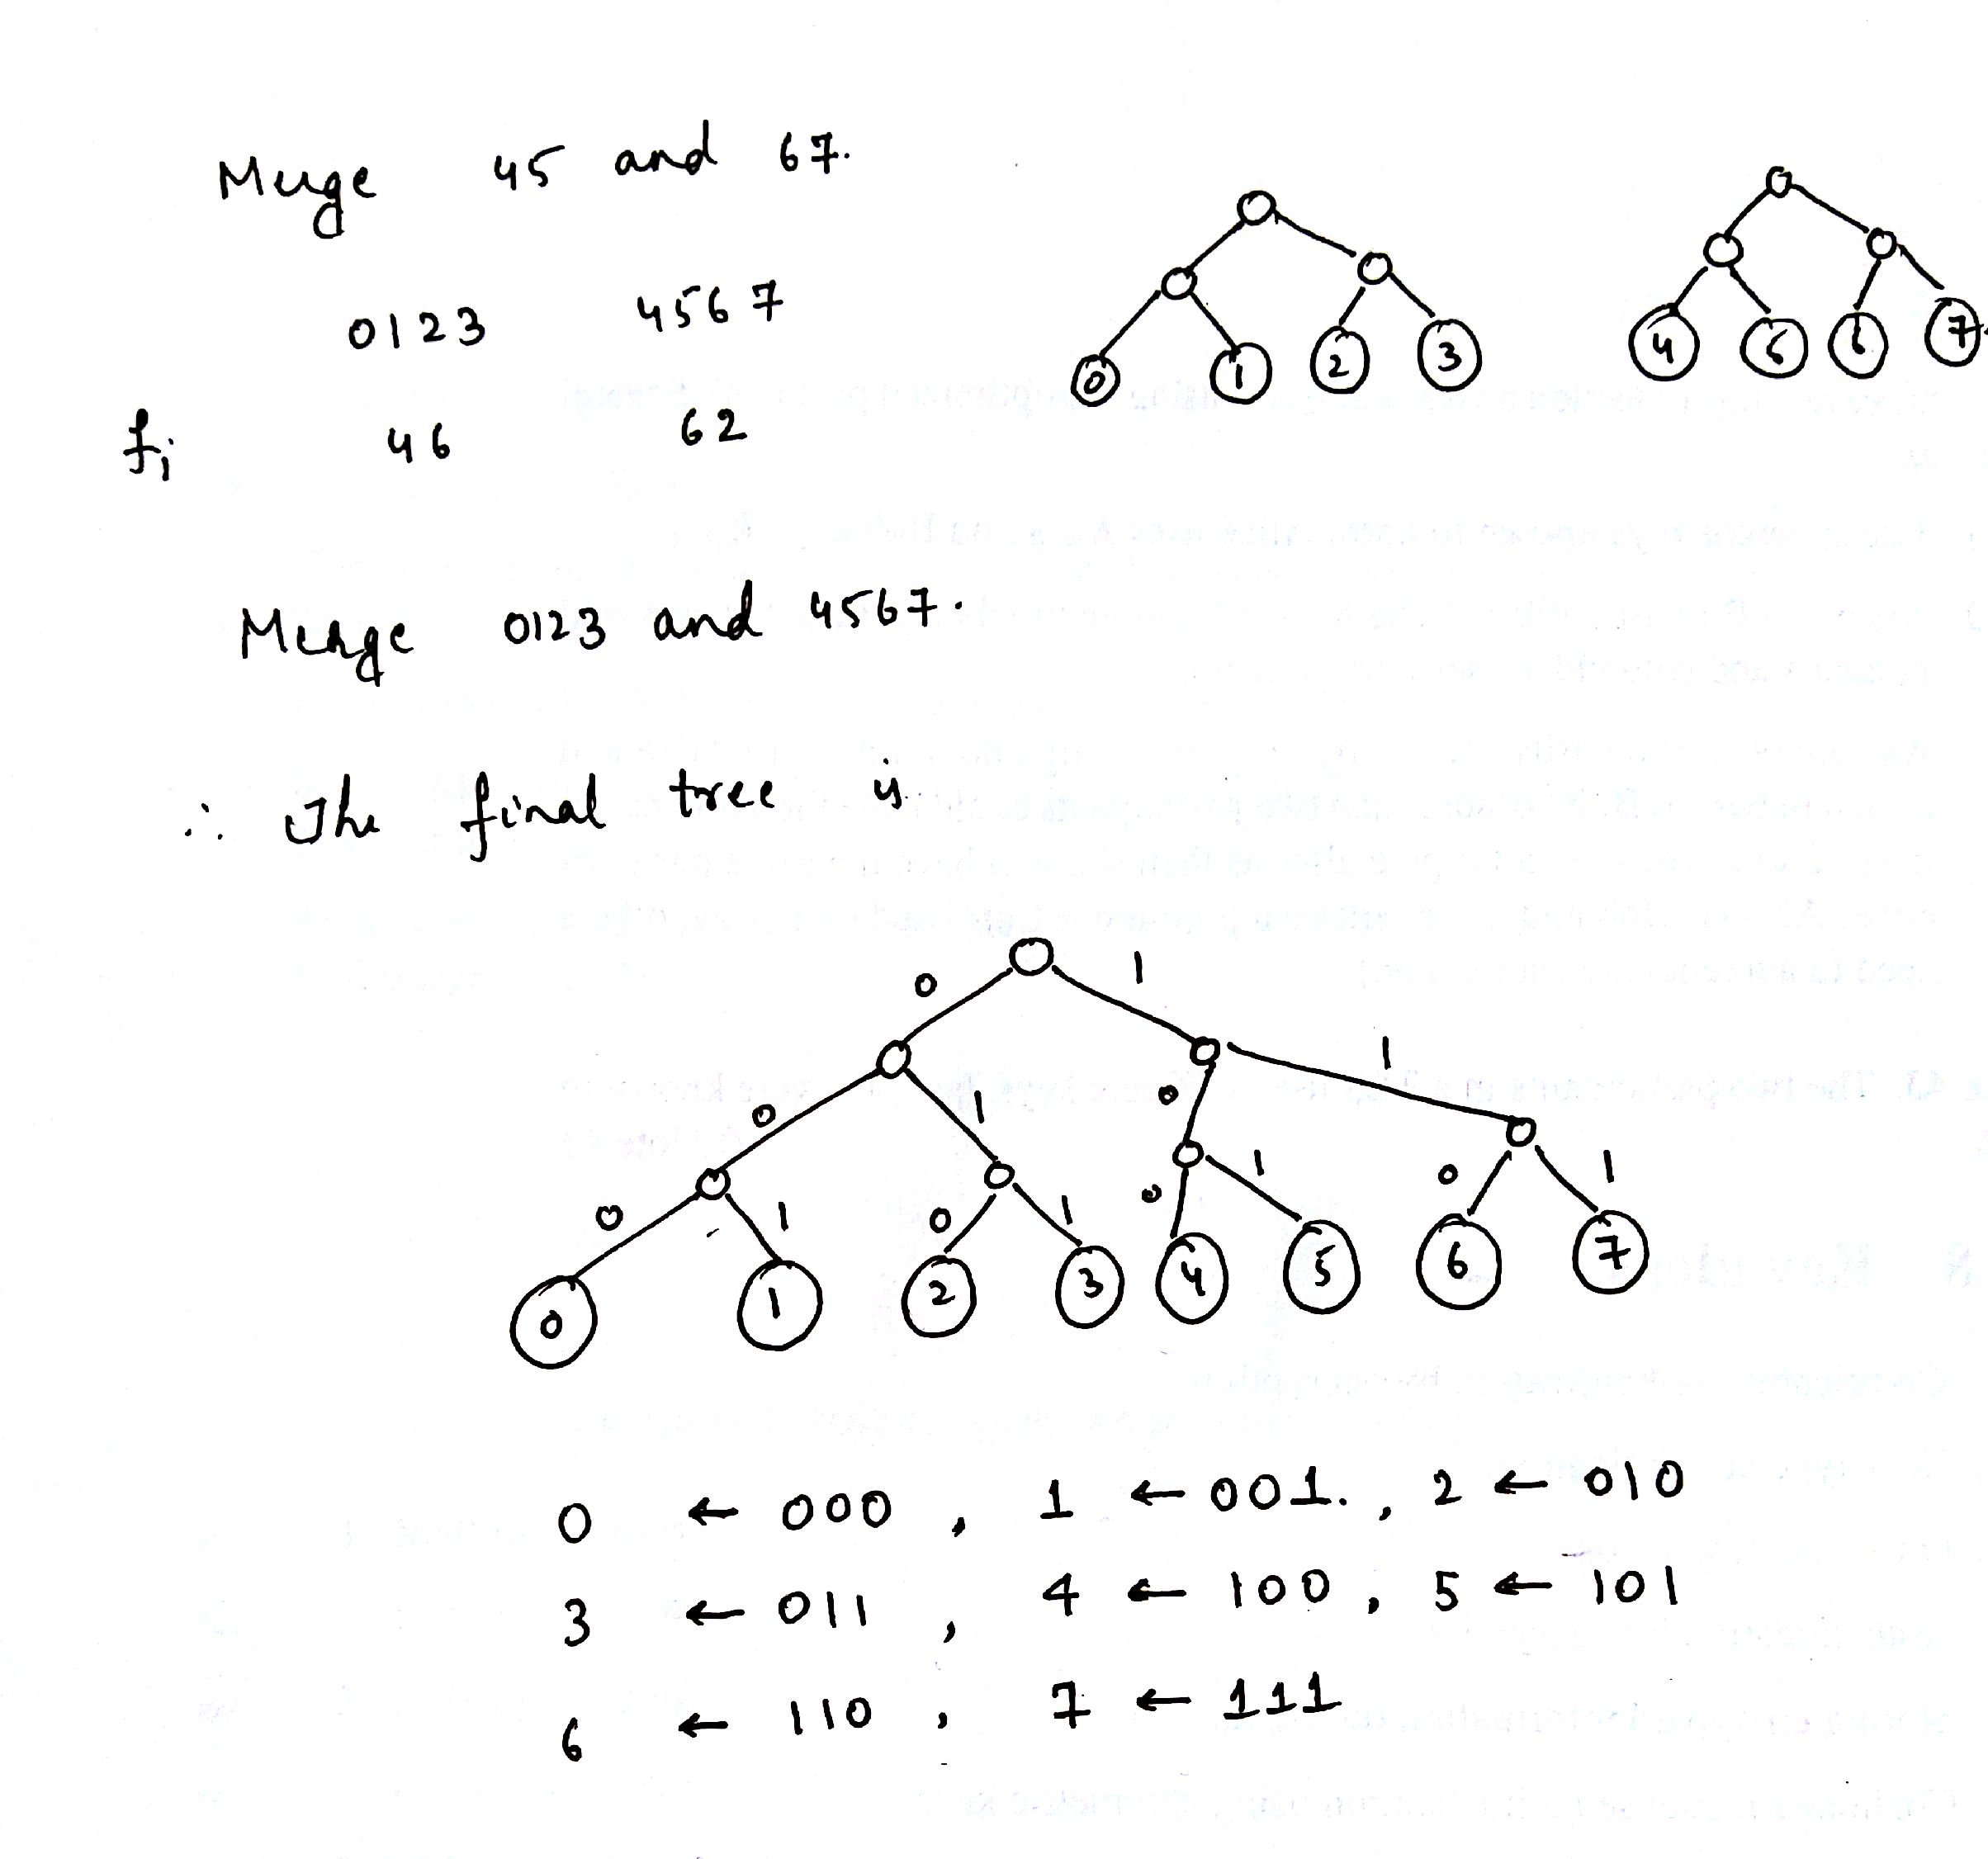 Merge 45 and 67.
0123 4567
fi 46 62
0 1 2 3 4 5 6 7
Merge 0123 and 4567.
∴ The final tree is
0 1
0 1 0 1
0 1 0 1 0 1 0 1
0 1 2 3 4 5 6 7
0 ← 000 , 1 ← 001. , 2 ← 010
3 ← 011 , 4 ← 100 , 5 ← 101
6 ← 110 , 7 ← 111